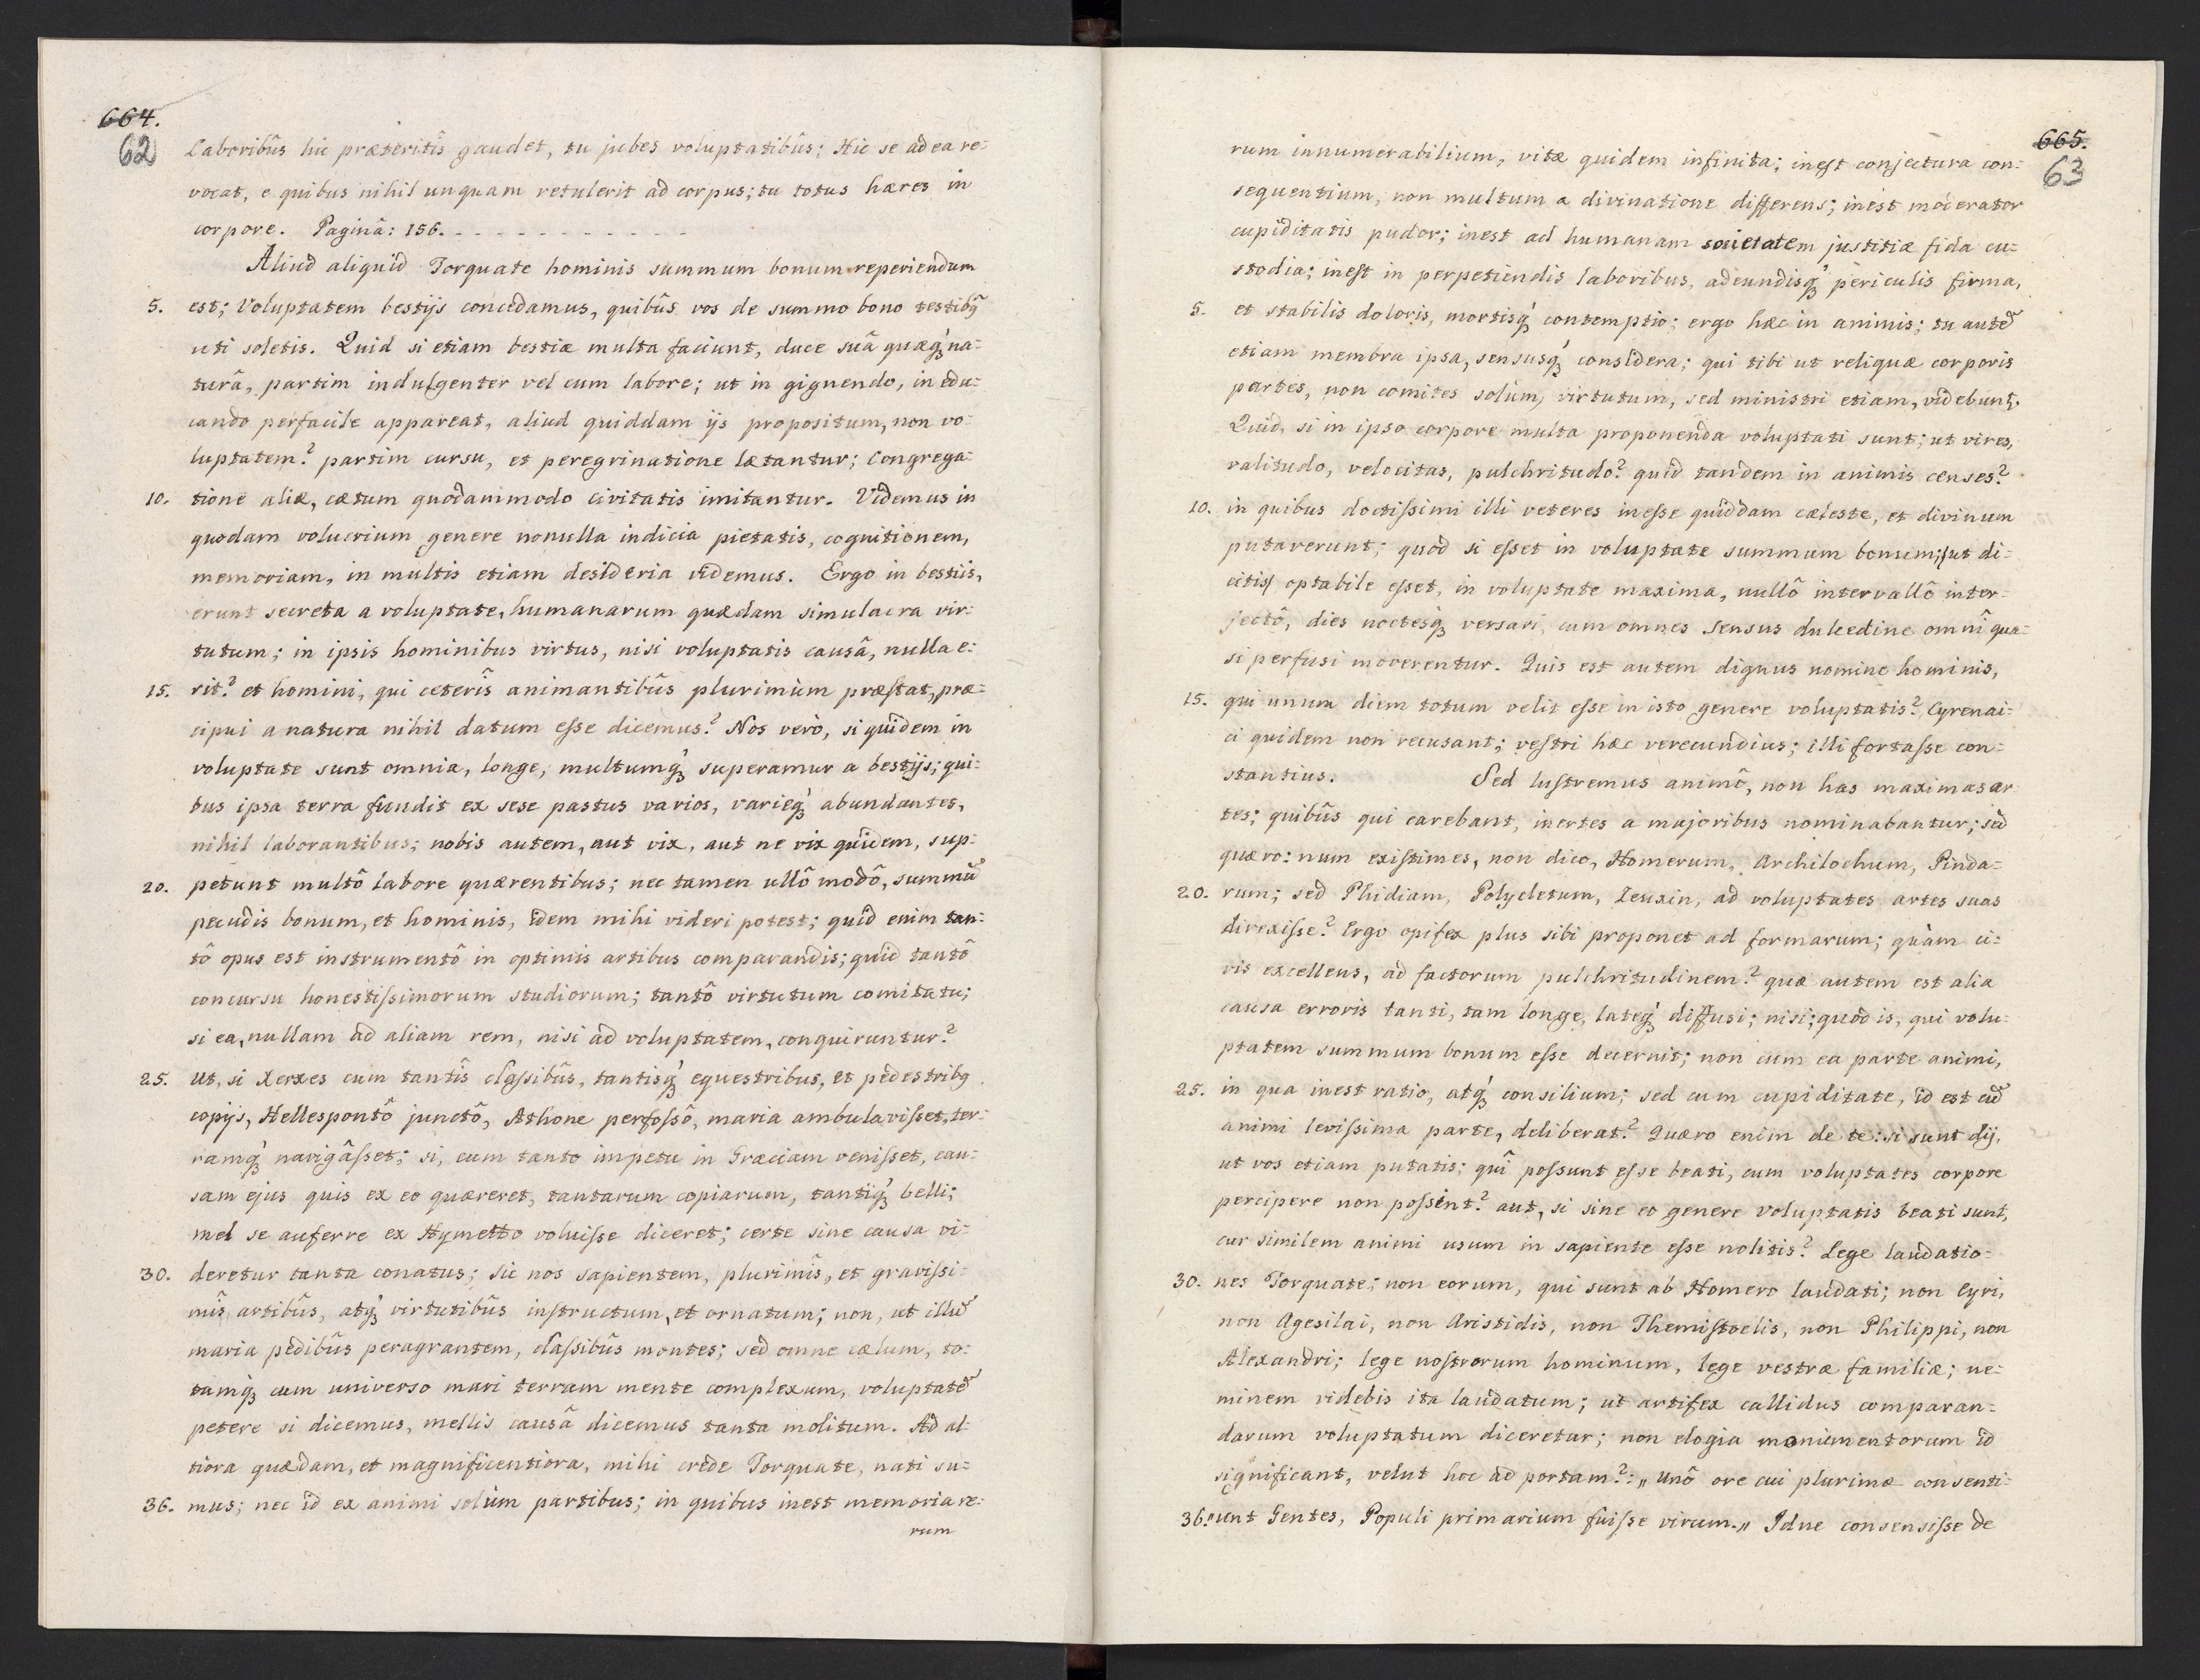 664.
62
Laboribûs hic præteritîs gaudet, tu jubes voluptatibûs; Hic se ad ea re=
vocat, e quibus nihil unquam retulerit ad corpus; tu totus hæres in
corpore. Paginâ: 156. - - - - - - - - - - -
Aliud aliquid Torquate hominis summum bonum reperiendum
5. est; Voluptatem bestijs concedamus, quibûs vos de summo bono testibꝯ
uti soletis. Quid si etiam bestiæ multa faciunt, duce suâ quæqꝫ na=
turâ, partim indulgenter vel cum labore; ut in gignendo, in edu=
cando perfacile appareat, aliud quiddam ijs propositum, non vo=
luptatem? partim cursu, et peregrinatione lætantur; Congrega=
10. tione aliæ, cætum quodanimodo civitatis imitantur. Videmus in
quodam volucrium genere nonulla indicia pietatis, cognitionem,
memoriam, in multis etiam desideria videmus. Ergo in bestiis,
erunt secreta a voluptate, humanarum quædam simulacra vir=
tutum; in ipsis hominibus virtus, nisi voluptatis causâ, nulla e=
15. rit? et homini, qui ceterîs animantibûs plurimùm præſtat, præ=
cipui a natura nihil datum eſse dicemus? Nos verò, siquidem in
voluptate sunt omnia, longe, multumqꝫ superamur a bestijs; qui=
bus ipsa terra fundit ex sese pastus varios, varieqꝫ abundantes,
nihil laborantibus; nobis autem, aut vix, aut ne vix quidem, sup=
20. petunt multô labore quærentibus; nec tamen ullô modô, summũ
pecudis bonum, et hominis, idem mihi videri potest; quid enim tan=
tô opus est instrumentô in optimis artibus comparandis; quid tantô
concursu honestiſsimorum studiorum; tantô virtutum comitatu;
si ea, nullam ad aliam rem, nisi ad voluptatem, conquiruntur?
25. Ut, si Xerxes cum tantîs claſsibûs, tantisqꝫ equestribus, et pedestribꝯ
copijs, Hellespontô junctô, Athone perfoſsô, maria ambulaviſset, ter=
ramqꝫ navigâſset; si, cum tanto impetu in Græciam veniſset, cau=
sam ejus quis ex eo quæreret, tantarum copiarum, tantiqꝫ belli;
mel se auferre ex Hymetto voluiſse diceret; certe sine causa vi=
30. deretur tanta conatus; sic nos sapientem, plurimîs, et graviſsi=
mîs artibûs, atqꝫ virtutibûs inſtructum, et ornatum; non, ut illũ
maria pedibûs peragrantem, claſsibûs montes; sed omne cælum, to=
tamqꝫ cum universo mari terram mente complexum, voluptatẽ
petere si dicemus, mellis causâ dicemus tanta molitum. Ad al=
tiora quædam, et magnificentiora, mihi crede Torquate, nati su=
36. mus; nec id ex animi solùm partibus; in quibus inest memoria re=
rum
665.
63
rum innumerabilium, vitæ quidem infinita; ineſt conjectura con=
sequentium, non multum a divinatione differens; inest moderator
cupiditatis pudor; inest ad humanam societatem justitiæ fida cu=
stodia; ineſt in perpetiendis laboribus, adeundisqꝫ periculis firma,
5. et stabilis doloris, mortisqꝫ contemptio; ergo hæc in animis; tu autẽ
etiam membra ipsa, sensusqꝫ considera; qui tibi ut reliquæ corporis
partes, non comites solùm, virtutum, sed ministri etiam, videbunt.
Quid, si in ipso corpore multa proponenda voluptati sunt; ut vires,
valitudo, velocitas, pulchritudo? quid tandem in animis censes?
10. in quibus doctiſsimi illi veteres ineſse quiddam cæleste, et divinum
putaverunt; quod si eſset in voluptate summum bonum; (ut di=
citis) optabile eſset, in voluptate maxima, nullô intervallô inter=
jectô, dies noctesqꝫ versari, cum omnes sensus dulcedine omnî qua=
si perfusi moverentur. Quis est autem dignus nomine hominis,
15. qui unum diem totum velit eſse in isto genere voluptatis? Cyrenai=
ci quidem non recusant; veſtri hæc verecundius; illi fortaſse con=
stantius. Sed luſtremus animô, non has maximas ar=
tes; quibûs qui carebant, inertes a majoribus nominabantur; sed
quæro: num exiſtimes, non dico, Homerum, Archilochum, Pinda=
20. rum; sed Phidiam, Polycletum, Zeuxin, ad voluptates artes suas
direxiſse? Ergo opifex plus sibi proponet ad formarum; quàm ci=
vis excellens, ad factorum pulchritudinem? quæ autem est alia
causa erroris tanti, tam longe, lateqꝫ diffusi; nisi; quod is, qui volu=
ptatem summum bonum eſse decernit; non cum ea parte animi,
25. in qua inest ratio, atqꝫ consilium; sed cum cupiditate, id est cũ
animi leviſsima parte, deliberat? Quæro enim de te: si sunt dij,
ut vos etiam putatis; quî poſsunt eſse beati, cum voluptates corpore
percipere non poſsint? aut, si sine eo genere voluptatis beati sunt,
cur similem animi usum in sapiente eſse nolitis? Lege laudatio=
30. nes Torquate; non eorum, qui sunt ab Homero laudati; non Cyri,
non Agesilai, non Aristidis, non Themiſtoclis, non Philippi, non
Alexandri; lege noſtrorum hominum, lege vestræ familiæ; ne=
minem videbis ita laudatum; ut artifex callidus comparan=
darum voluptatum diceretur; non elogia monumentorum id
significant, velut hoc ad portam?: „ Unô ore cui plurimæ consenti=
36. „ unt Gentes, Populi primarium fuiſse virum. „ Idne consensiſse de